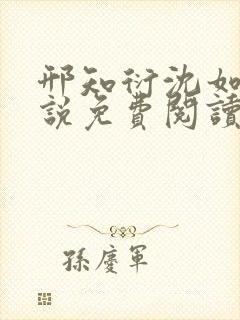 邢知衍沈如
說免費閱讀
孫慶軍